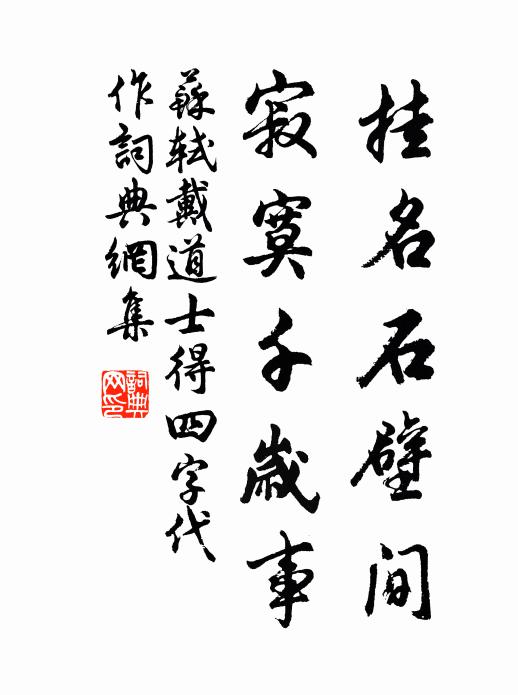 挂名石壁间
寂寞千歲事
蘇軾戴道士得四字代
作詞典網集
詞典
网印